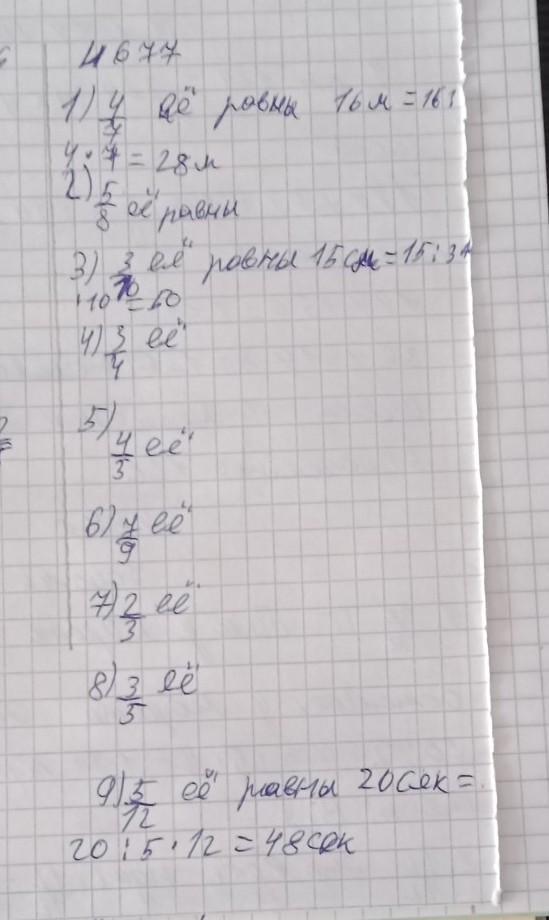 4677
1) 4/7 её равны 16м = 16:
4·7 = 28м
2) 5/8 её равны
3) 3/10 её равны 15см = 15:3
·10 = 50
4) 3/4 её
5) 4/3 её
6) 7/9 её
7) 2/3 её
8) 3/5 её
9) 5/12 её равны 20сек =
20:5·12 = 48сек